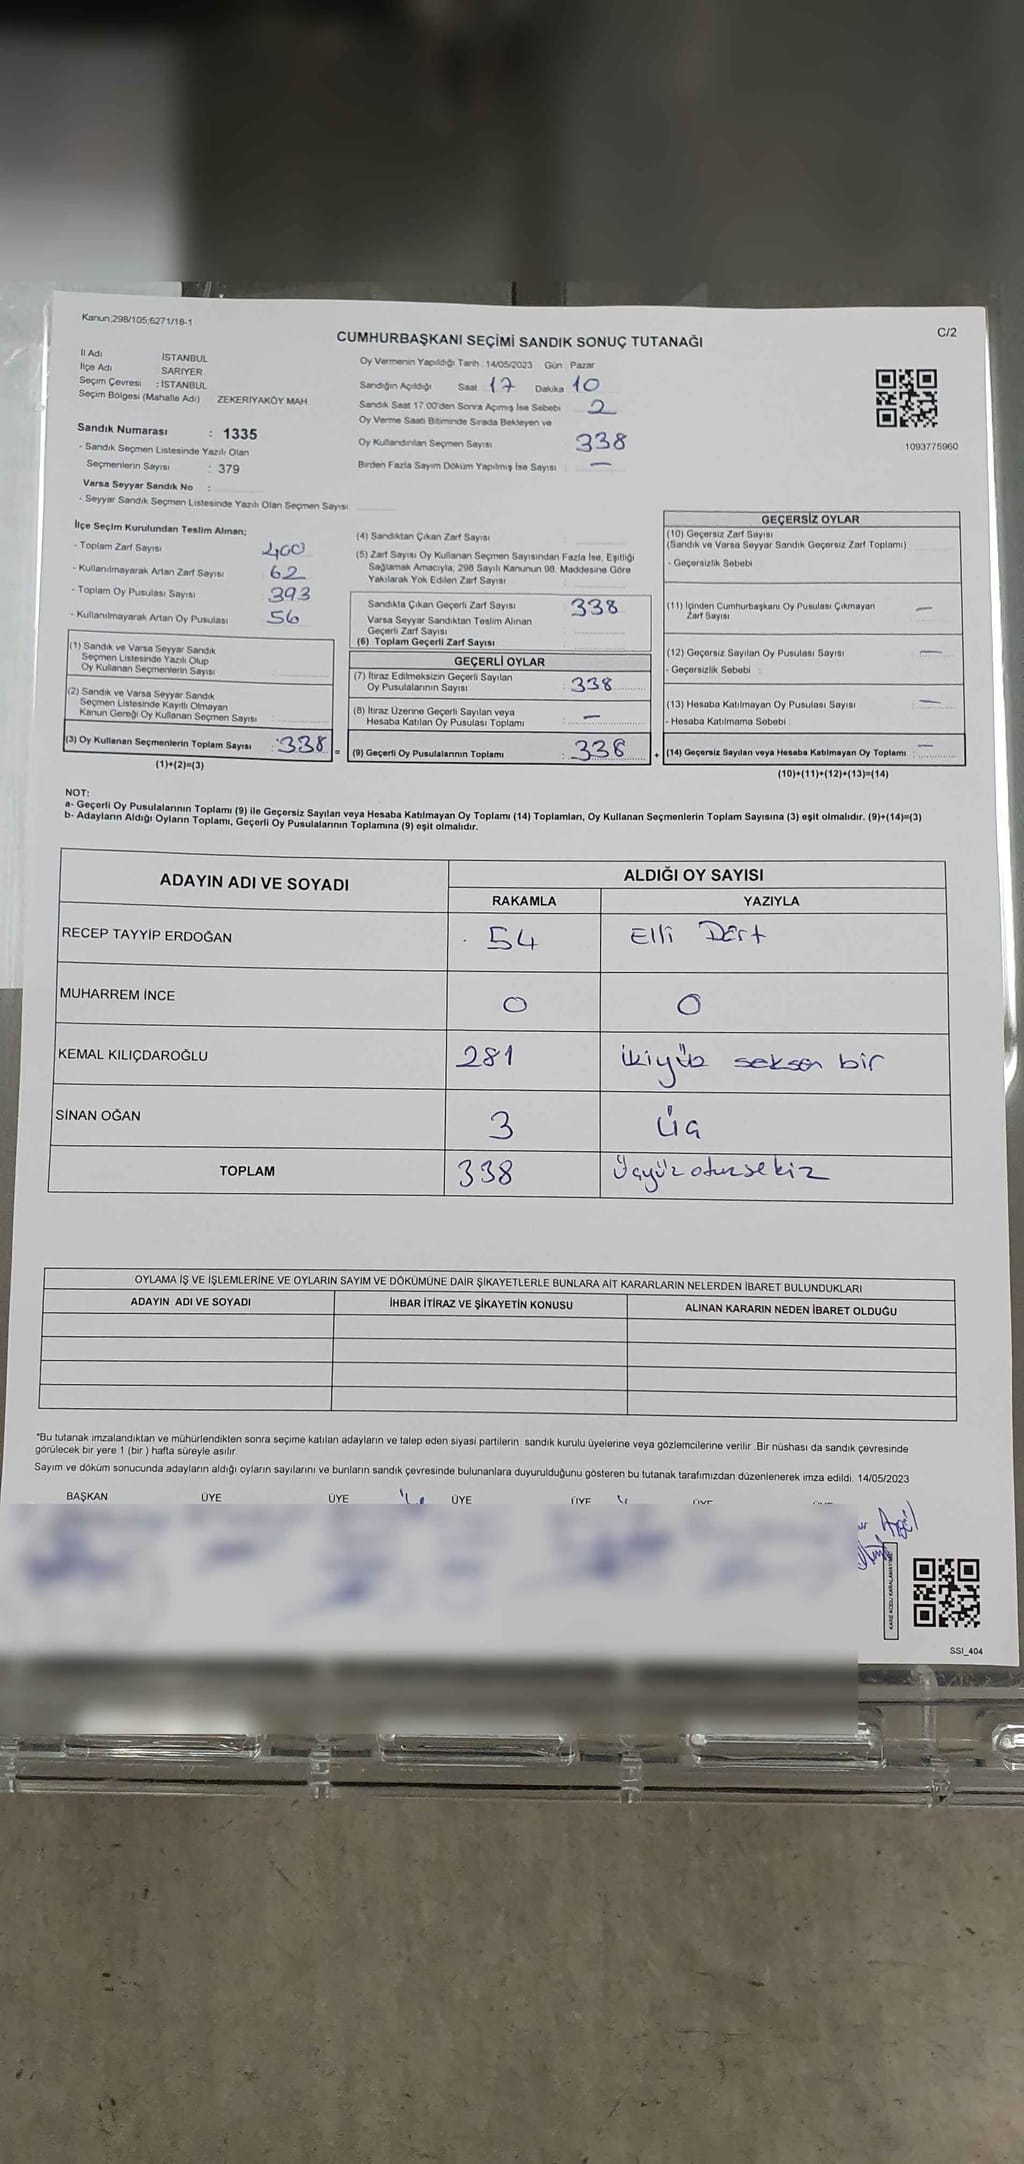 Kanun;298/105;6271/18-1
C/2
CUMHURBAŞKANI SEÇİMİ SANDIK SONUÇ TUTANAĞI
İl Adı İSTANBUL
İlçe Adı SARIYER
Seçim Çevresi : İSTANBUL
Seçim Bölgesi (Mahalle Adı) ZEKERİYAKÖY MAH
Sandık Numarası : 1335
- Sandık Seçmen Listesinde Yazılı Olan
Seçmenlerin Sayısı : 379
Varsa Seyyar Sandık No :
- Seyyar Sandık Seçmen Listesinde Yazılı Olan Seçmen Sayısı
Oy Vermenin Yapıldığı Tarih : 14/05/2023 Gün : Pazar
Sandığın Açıldığı Saat 17 Dakika 10
Sandık Saat 17.00'den Sonra Açımış İse Sebebi
Oy Verme Saati Bitiminde Sırada Bekleyen ve 2
Oy Kullandırılan Seçmen Sayısı 338
Birden Fazla Sayım Döküm Yapılmış İse Sayısı : —
1093775960
İlçe Seçim Kurulundan Teslim Alınan;
- Toplam Zarf Sayısı 400
- Kullanılmayarak Artan Zarf Sayısı 62
- Toplam Oy Pusulası Sayısı 393
- Kullanılmayarak Artan Oy Pusulası 56
(1) Sandık ve Varsa Seyyar Sandık
Seçmen Listesinde Yazılı Olup
Oy Kullanan Seçmenlerin Sayısı
(2) Sandık ve Varsa Seyyar Sandık
Seçmen Listesinde Kayıtlı Olmayan
Kanun Gereği Oy Kullanan Seçmen Sayısı
(3) Oy Kullanan Seçmenlerin Toplam Sayısı : 338 =
(1)+(2)=(3)
(4) Sandıktan Çıkan Zarf Sayısı
(5) Zarf Sayısı Oy Kullanan Seçmen Sayısından Fazla İse, Eşitliği
Sağlamak Amacıyla, 298 Sayılı Kanunun 98. Maddesine Göre
Yakılarak Yok Edilen Zarf Sayısı
Sandıkta Çıkan Geçerli Zarf Sayısı 338
Varsa Seyyar Sandıktan Teslim Alınan
Geçerli Zarf Sayısı
(6) Toplam Geçerli Zarf Sayısı
GEÇERLİ OYLAR
(7) İtiraz Edilmeksizin Geçerli Sayılan
Oy Pusulalarının Sayısı : 338
(8) İtiraz Üzerine Geçerli Sayılan veya
Hesaba Katılan Oy Pusulası Toplamı : —
(9) Geçerli Oy Pusulalarının Toplamı : 338 +
GEÇERSİZ OYLAR
(10) Geçersiz Zarf Sayısı
(Sandık ve Varsa Seyyar Sandık Geçersiz Zarf Toplamı)
- Geçersizlik Sebebi
(11) İçinden Cumhurbaşkanı Oy Pusulası Çıkmayan —
Zarf Sayısı
(12) Geçersiz Sayılan Oy Pusulası Sayısı —
- Geçersizlik Sebebi
(13) Hesaba Katılmayan Oy Pusulası Sayısı —
- Hesaba Katılmama Sebebi
(14) Geçersiz Sayılan veya Hesaba Katılmayan Oy Toplamı : —
(10)+(11)+(12)+(13)=(14)
NOT:
a- Geçerli Oy Pusulalarının Toplamı (9) ile Geçersiz Sayılan veya Hesaba Katılmayan Oy Toplamı (14) Toplamları, Oy Kullanan Seçmenlerin Toplam Sayısına (3) eşit olmalıdır. (9)+(14)=(3)
b- Adayların Aldığı Oyların Toplamı, Geçerli Oy Pusulalarının Toplamına (9) eşit olmalıdır.
ADAYIN ADI VE SOYADI ALDIĞI OY SAYISI
RAKAMLA YAZIYLA
RECEP TAYYİP ERDOĞAN 54 Elli Dört
MUHARREM İNCE 0 0
KEMAL KILIÇDAROĞLU 281 ikiyüz seksen bir
SİNAN OĞAN 3 üç
TOPLAM 338 Üçyüz otuz sekiz
OYLAMA İŞ VE İŞLEMLERİNE VE OYLARIN SAYIM VE DÖKÜMÜNE DAİR ŞİKAYETLERLE BUNLARA AİT KARARLARIN NELERDEN İBARET BULUNDUKLARI
ADAYIN ADI VE SOYADI İHBAR İTİRAZ VE ŞİKAYETİN KONUSU ALINAN KARARIN NEDEN İBARET OLDUĞU
*Bu tutanak imzalandıktan ve mühürlendikten sonra seçime katılan adayların ve talep eden siyasi partilerin sandık kurulu üyelerine veya gözlemcilerine verilir .Bir nüshası da sandık çevresinde
görülecek bir yere 1 (bir ) hafta süreyle asılır.
Sayım ve döküm sonucunda adayların aldığı oyların sayılarını ve bunların sandık çevresinde bulunanlara duyurulduğunu gösteren bu tutanak tarafımızdan düzenlenerek imza edildi. 14/05/2023
BAŞKAN ÜYE ÜYE ÜYE ÜYE
SSI_404